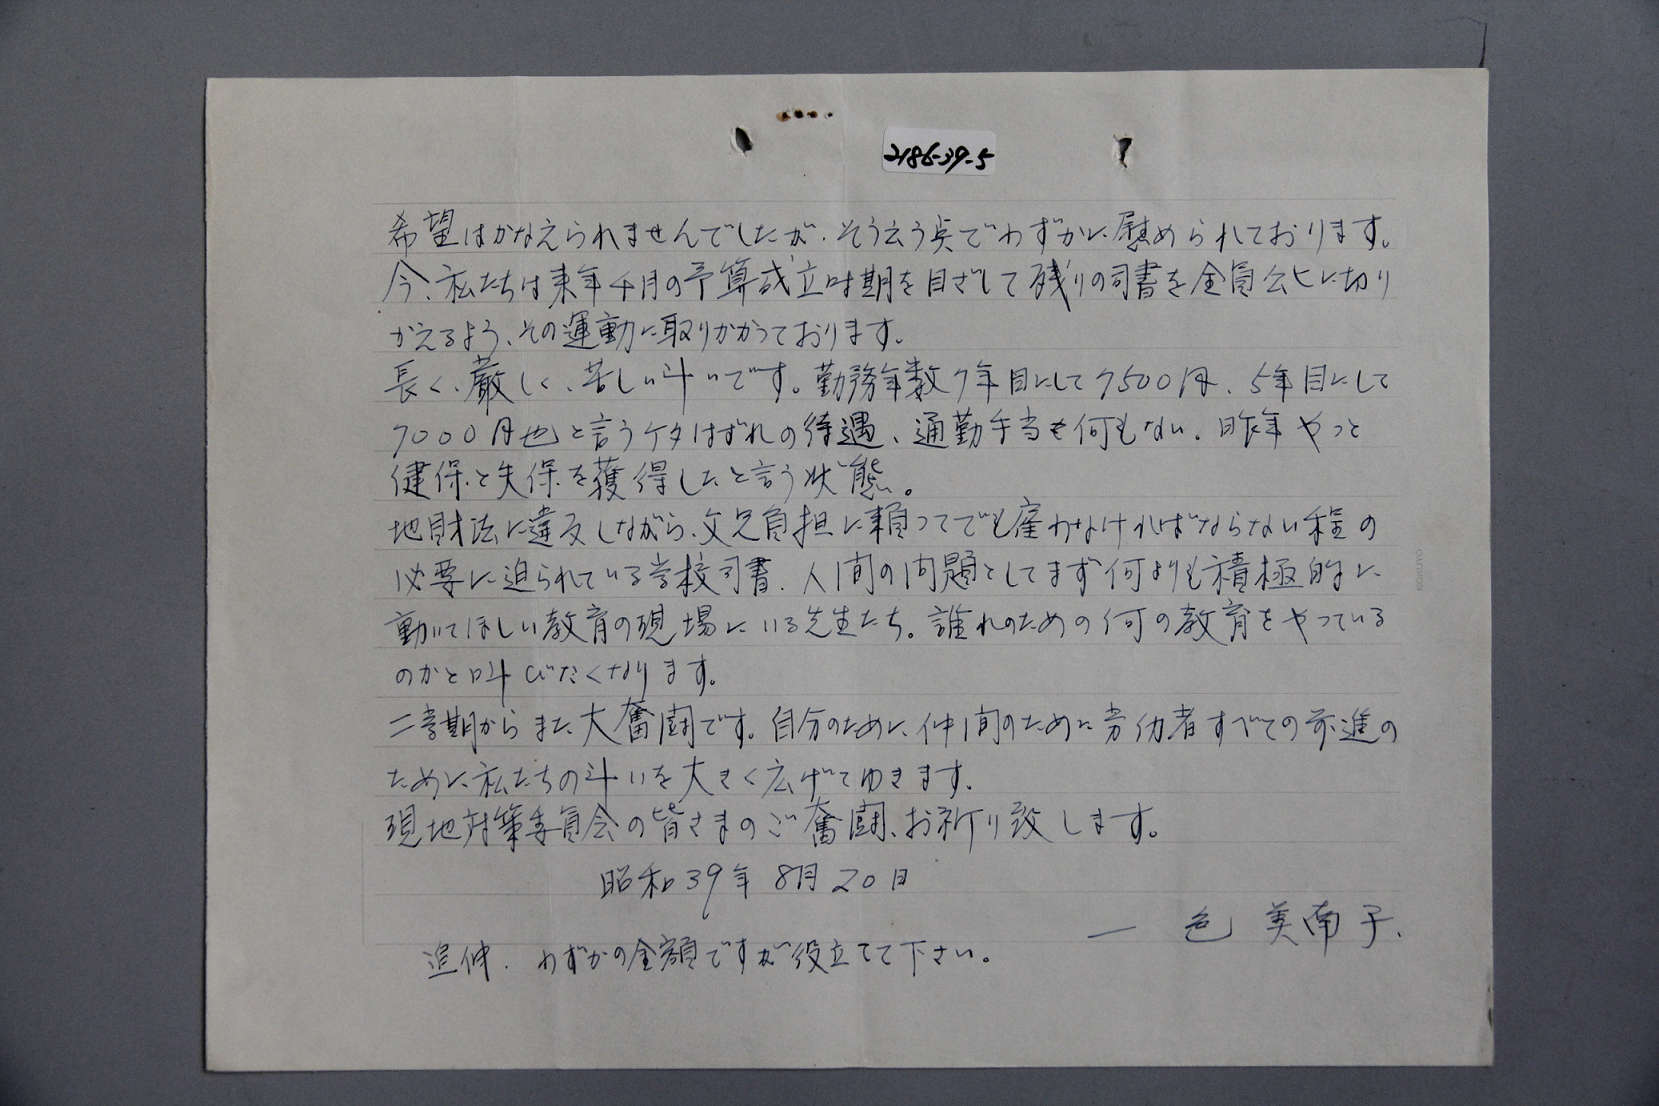 2186-39-5
希望はかなえられませんでしたが、そう云う点でわずかに慰められております。
今、私たちは来年4月の予算成立時期を目ざして残りの司書を全員公ヒに切り
かえるよう、その運動に取りかかっております。
長く、厳しく、苦しい斗いです。勤務年数7年目にして7500円、5年目にして
7000円也と言うケタはずれの待遇、通勤手当も何もない。昨年やっと
健保と失保を獲得したと言う状態。
地財法に違反しながら、父兄負担に頼ってでも雇わなければならない程の
必要に迫られている学校司書、人間の問題としてまず何よりも積極的に
動いてほしい教育の現場にいる先生たち。誰れのための何の教育をやっている
のかと叫びたくなります。
二学期からまた大奮闘です。自分のために、仲間のために労仂者すべての前進の
ために私たちの斗いを大きく広げてゆきます。
現地対策委員会の皆さまのご奮闘、お祈り致します。
昭和39年8月20日
一色 美南子.
追伸. わずかの金額ですが役立てて下さい。